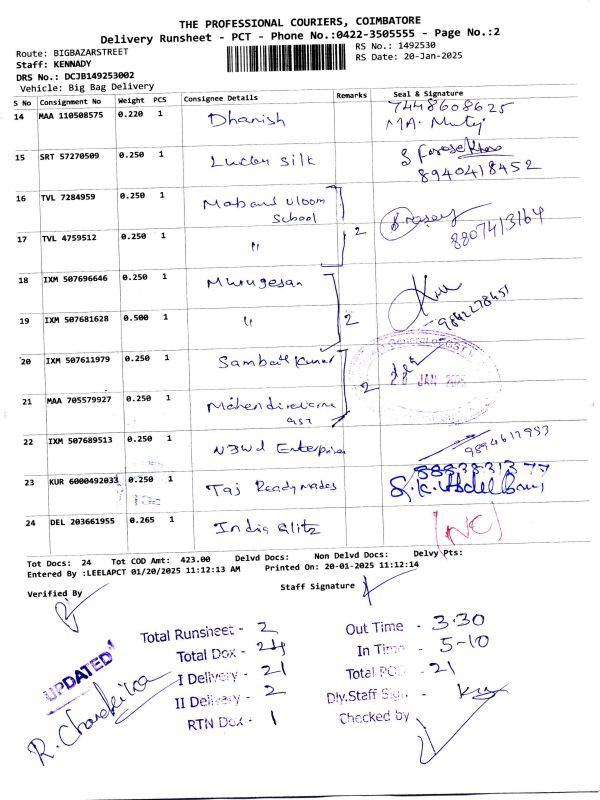 THE PROFESSIONAL COURIERS, COIMBATORE
Delivery Runsheet - PCT - Phone No.:0422-3505555 - Page No.:2
Route: BIGBAZARSTREET
RS No.: 1492530
Staff: KENNADY
RS Date: 20-Jan-2025
DRS No.: DCJB149253002
Vehicle: Big Bag Delivery
S No Consignment No Weight PCS Consignee Details Remarks Seal & Signature
14 MAA 110508575 0.220 1 Dhanish 7448608625
MA.
15 SRT 57270509 0.250 1 Lucky Silk
8940418452
16 TVL 7284959 0.250 1
School
2
8807413164
17 TVL 4759512 0.250 1 "
18 IXM 507696646 0.250 1 Murugesan
2
9842278451
19 IXM 507681628 0.500 1 "
20 IXM 507611979 0.250 1 Sambath Kumar
General of GST
20 JAN 2025
2
21 MAA 705579927 0.250 1
GST
22 IXM 507689513 0.250 1 Enterprises
9894617953
23 KUR 6000492033 0.250 1 Taj Readymades
S.K. Abdul
24 DEL 203661955 0.265 1 India Glitz (NC)
Tot Docs: 24 Tot COD Amt: 423.00 Delvd Docs: Non Delvd Docs: Delvy Pts:
Entered By :LEELAPCT 01/20/2025 11:12:13 AM Printed On: 20-01-2025 11:12:14
Verified By Staff Signature
Total Runsheet - 2 Out Time - 3.30
Total Dox - 24 In Time - 5-10
I Delivery - 21 Total POD - 21
II Delivery - 2 Dly.Staff Sign -
RTN Dox - 1 Checked by
UPDATED
R. Chandrika